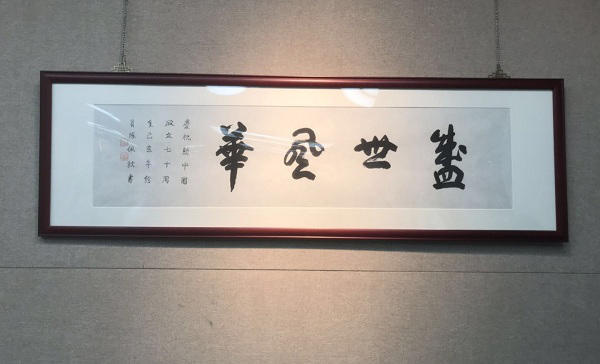 盛世風華
慶祝新中國
成立七十周
年己亥年
首陳佩秋書